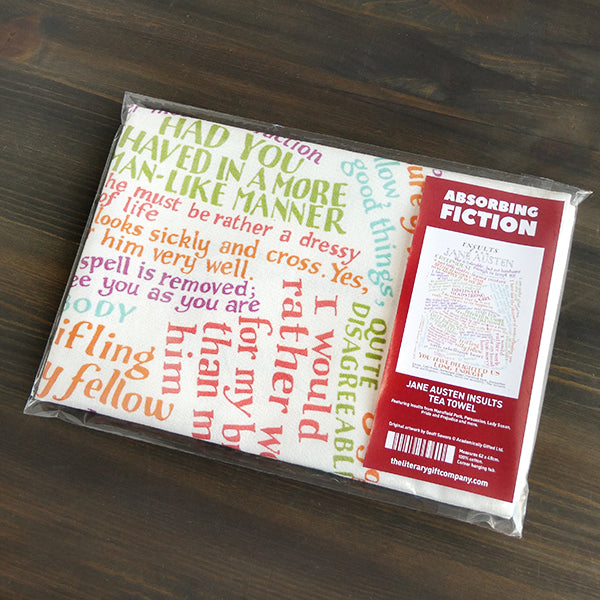 HAD YOU
HAVED IN A MORE
MAN-LIKE MANNER
he must be rather a dressy
of life
looks sickly and cross. Yes,
him very well.
spell is removed;
ee you as you are
BODY
ifling
y fellow
him
than m
for my b
rather w
I would
QUITE
DISAGREEABLE
good things,
ABSORBING
FICTION
INSULTS
JANE AUSTEN
YOU HAVE DELIGHTED US
LONG ENOUGH
JANE AUSTEN INSULTS
TEA TOWEL
Featuring insults from Mansfield Park, Persuasion, Lady Susan,
Pride and Prejudice and more.
Original artwork by Geoff Sawers © Academically Gifted Ltd.
Measures 62 x 48cm.
100% cotton.
Corner hanging loop.
theliterarygiftcompany.com